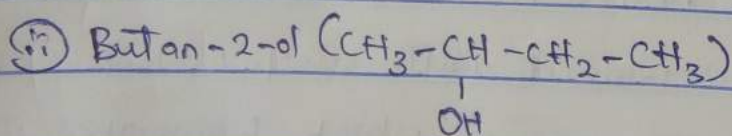 (ii) Butan-2-ol (CH₃-CH-CH₂-CH₃)
|
OH